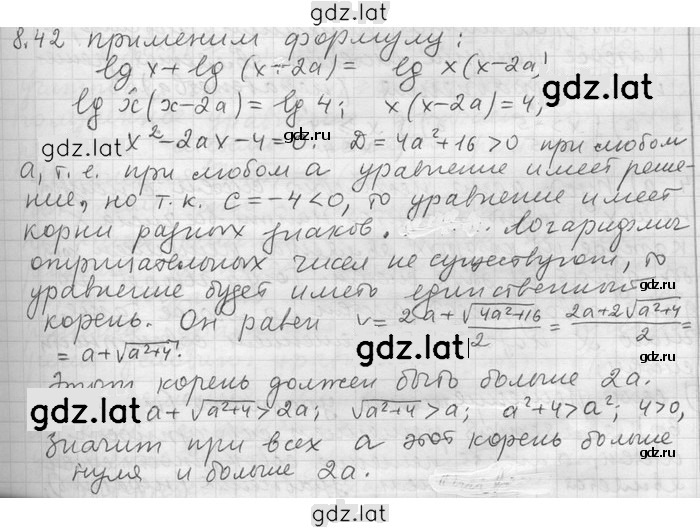 gdz.lat
8.42 применим формулу:
lg x + lg (x-2a) = lg x(x-2a)
gdz.lat
lg x(x-2a) = lg 4; x(x-2a) = 4,
gdz.lat x² - 2ax - 4 = 0. D = 4a² + 16 > 0 при любом
a, т.е. при любом a уравнение имеет реше-
ние, но т.к. C = -4 < 0, то уравнение имеет
корни разных знаков. Логарифмы
отрицательных чисел не существуют, то
gdz.lat
уравнение будет иметь единственный
корень. Он равен x = (2a + √(4a²+16))/2 = (2a + 2√(a²+4))/2 =
gdz.lat gdz.lat
= a + √(a²+4).
Этот корень должен быть больше 2a.
gdz.lat a + √(a²+4) > 2a; √(a²+4) > a; a² + 4 > a²; 4 > 0,
Значит при всех a этот корень больше
gdz.lat
нуля и больше 2a.
gdz.lat